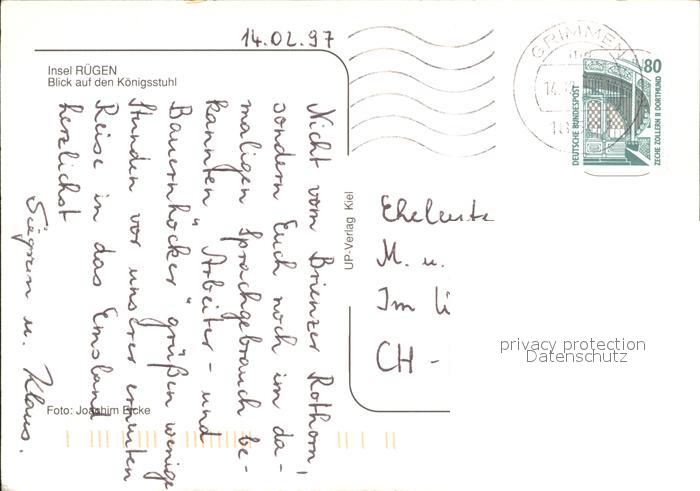 14.02.97
Insel RÜGEN
Blick auf den Königsstuhl
Nicht vom Brienzer Rothorn,
sondern Euch noch im da-
maligen Sprachgebrauch be-
kannten "Arbeiter- und
Bauernhocker" grüßen wenige
Stunden vor unserer erneuten
Reise in das Emsland
herzlichst
Siegrun u. Klaus.
Foto: Joachim Eicke
UP-Verlag Kiel
GRIMMEN
80
DEUTSCHE BUNDESPOST
ZECHE ZOLLERN II DORTMUND
Eheleute
M. u.
Im
CH -
privacy protection
Datenschutz